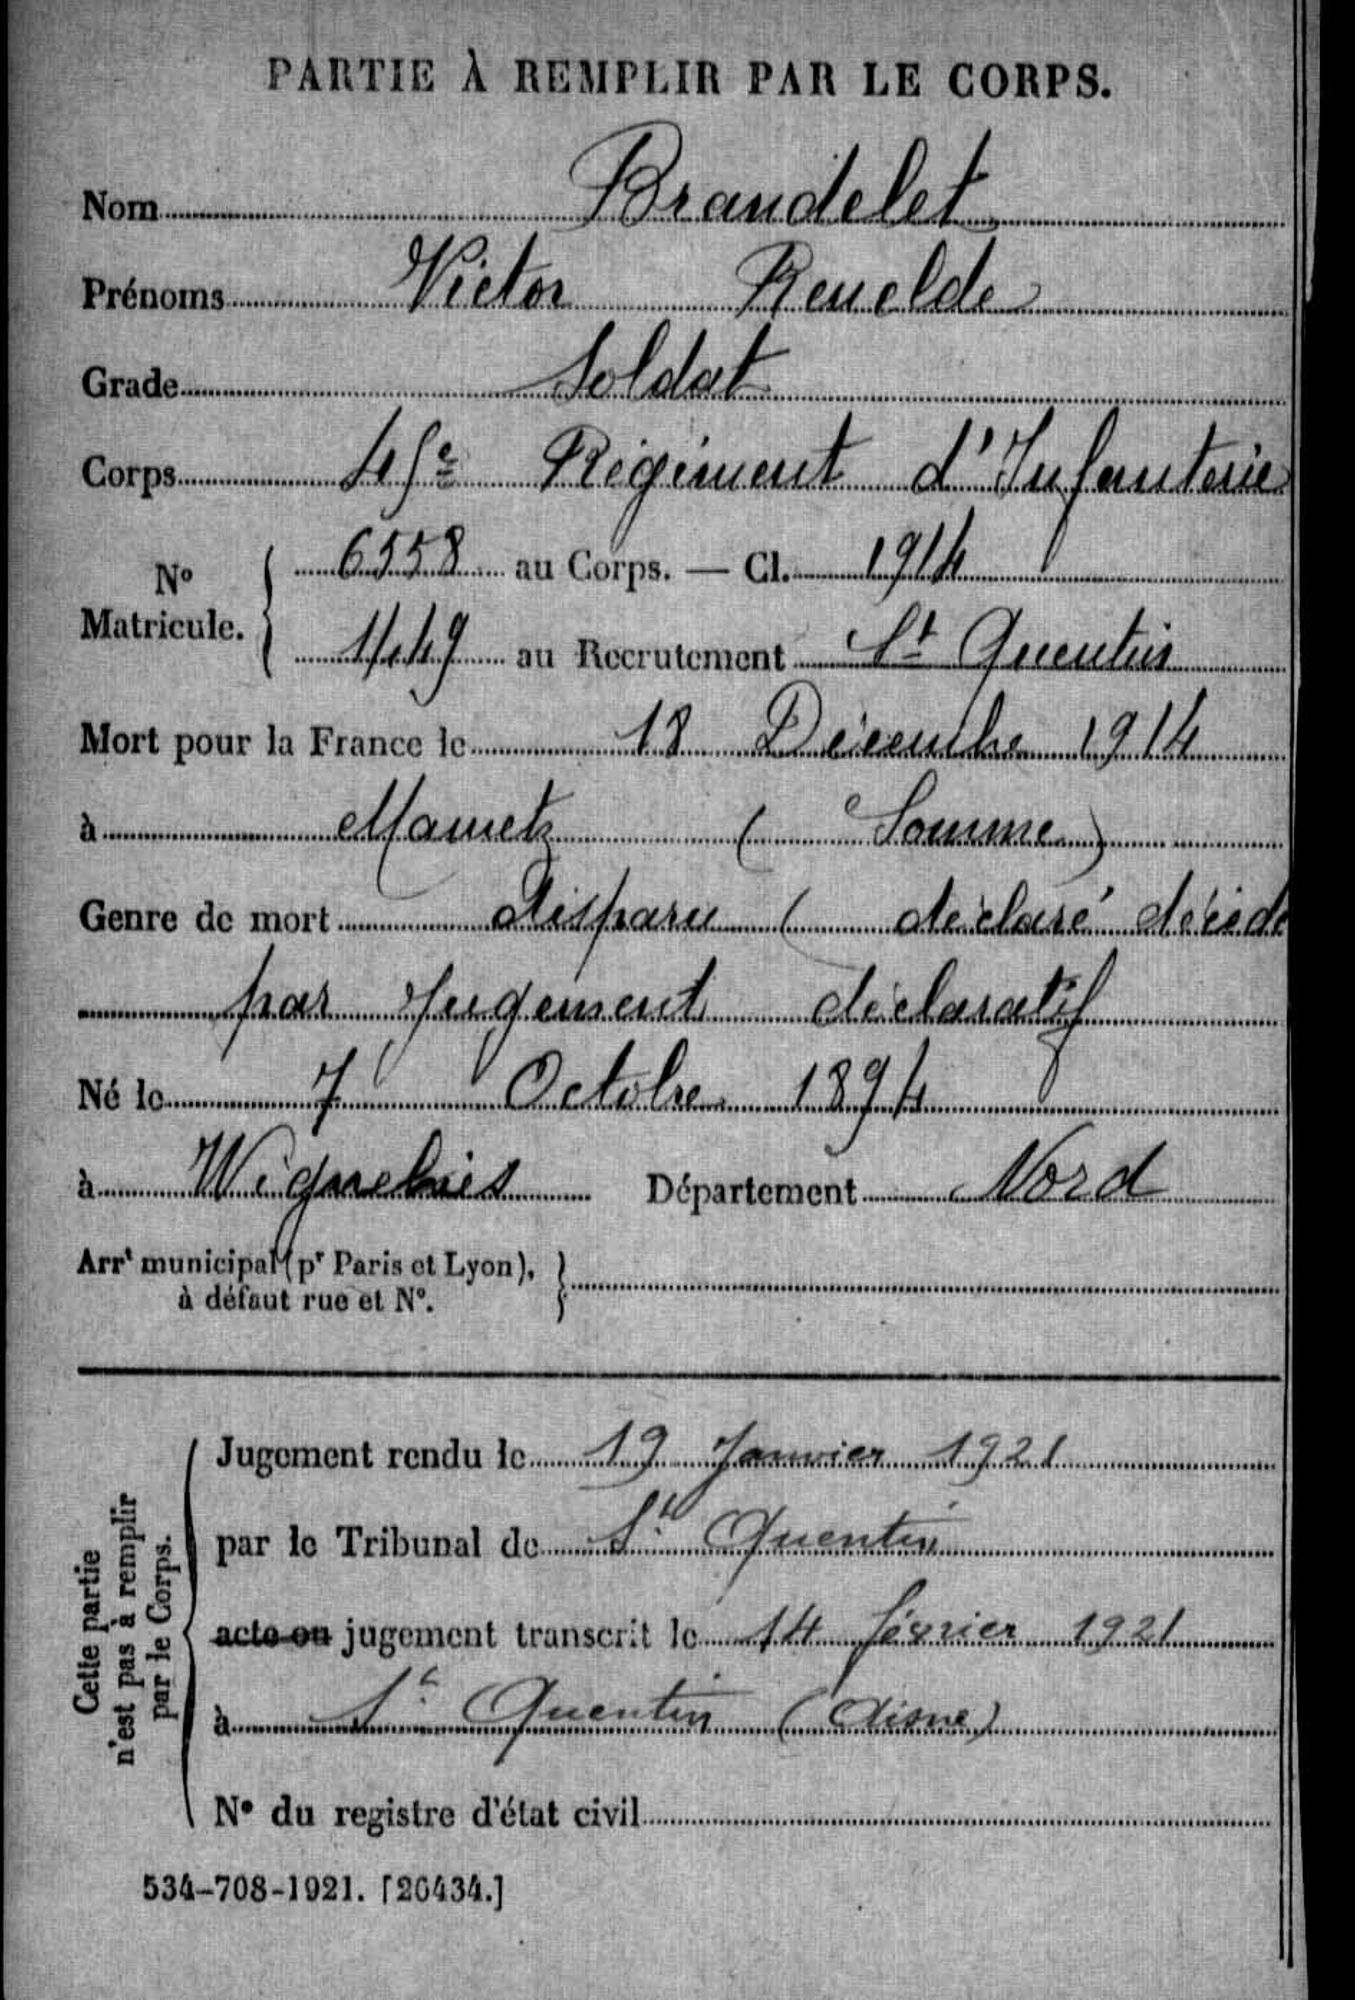 PARTIE À REMPLIR PAR LE CORPS.
Nom Brandelet
Prénoms Victor Renelde
Grade Soldat
Corps 45e Régiment d'Infanterie
No Matricule. 6558 au Corps. — Cl. 1914
1449 au Recrutement St Quentin
Mort pour la France le 18 Décembre 1914
à Mametz (Somme)
Genre de mort disparu (déclaré décédé
par jugement déclaratif
Né le 7 Octobre 1894
à Wignehies Département Nord
Arrt municipal (pr Paris et Lyon),
à défaut rue et No.
Cette partie
n'est pas à remplir
par le Corps.
Jugement rendu le 19 Janvier 1921
par le Tribunal de St Quentin
acte ou jugement transcrit le 14 février 1921
à St Quentin (Aisne)
No du registre d'état civil
534-708-1921. [26434.]